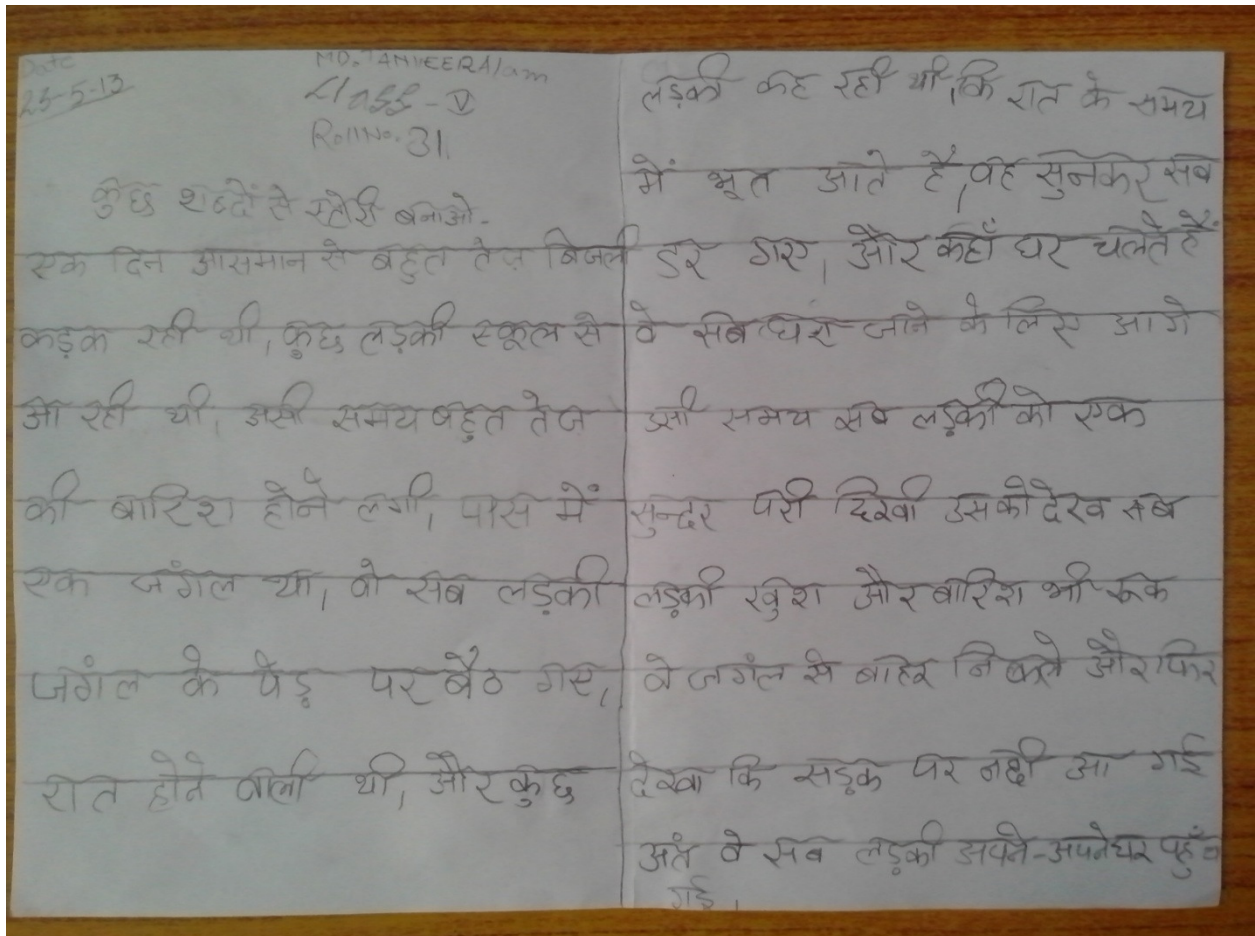 Date
23-5-13
MD. TANVEER Alam
Class - V
Roll No. 31.
कुछ शब्दों से स्टोरी बनाओ-
एक दिन आसमान से बहुत तेज़ बिजली
कड़क रही थी, कुछ लड़की स्कूल से
आ रही थी, उसी समय बहुत तेज
की बारिश होने लगी, पास में
एक जंगल था, वो सब लड़की
जगंल के पेड़ पर बैठ गए,
रात होने वाली थी, और कुछ
लड़की कह रही थी, कि रात के समय
में भूत आते है, वह सुनकर सब
डर गए, और कहाँ घर चलते हैं
वे सब घर जाने के लिए आगे
उसी समय सब लड़की को एक
सुन्दर परी दिखी उसको देख सब
लड़की खुश और बारिश भी रूक
वे जगंल से बाहर निकले और फिर
देखा कि सड़क पर नदी आ गई
अतं वे सब लड़की अपने-अपने घर पहुँच
गई,